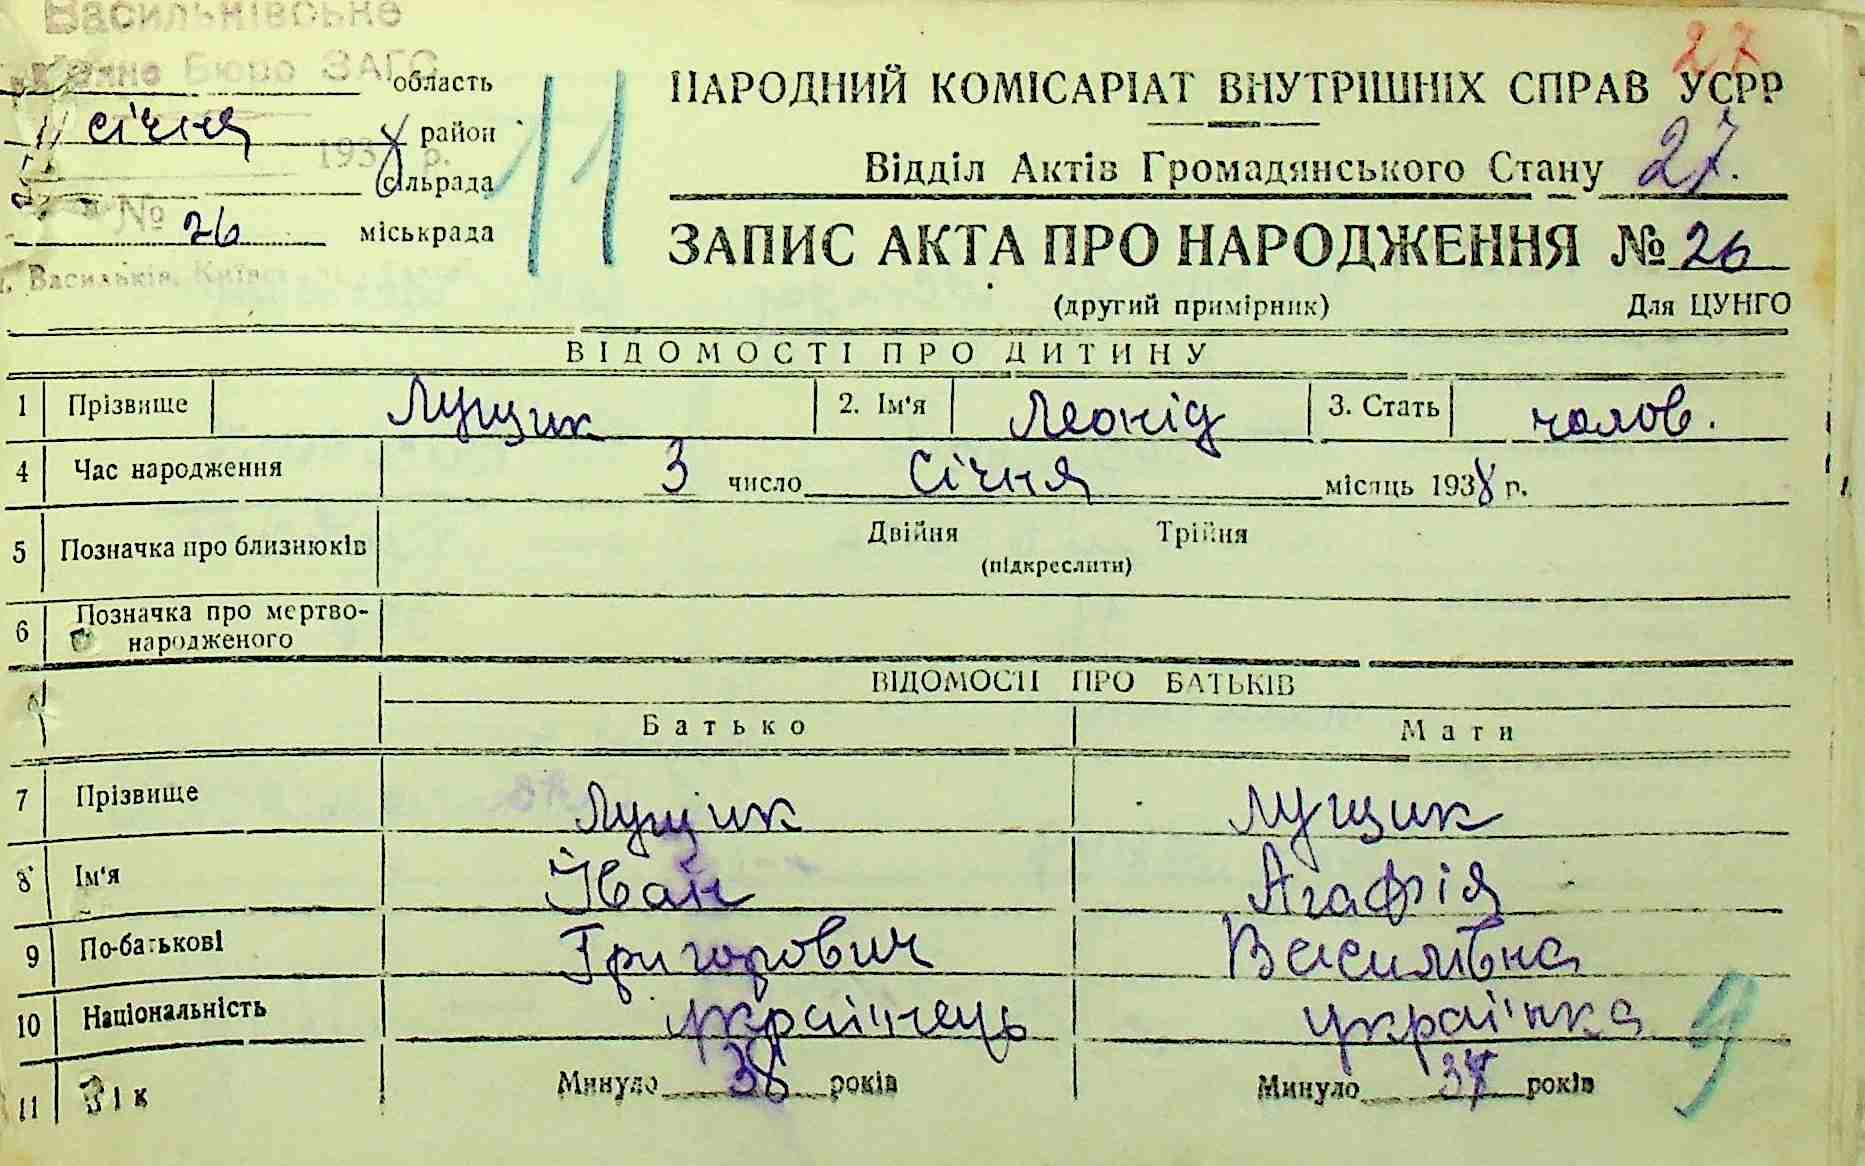 Васильківське
Бюро ЗАГС
область
11 січня 1938 р. район
сільрада
№ 26 міськрада
м. Васильків, Київс
11
27
НАРОДНИЙ КОМІСАРІАТ ВНУТРІШНІХ СПРАВ УСРР
Відділ Актів Громадянського Стану 27.
ЗАПИС АКТА ПРО НАРОДЖЕННЯ № 26
(другий примірник) Для ЦУНГО
ВІДОМОСТІ ПРО ДИТИНУ
1 Прізвище Лущик 2. Ім'я Леонід 3. Стать чолов.
4 Час народження 3 число Січня місяць 1938 р.
5 Позначка про близнюків Двійня Трійня
(підкреслити)
6 Позначка про мертво-
народженого
ВІДОМОСТІ ПРО БАТЬКІВ
Батько Мати
7 Прізвище Лущик Лущик
8 Ім'я Іван Агафія
9 По-батькові Григорович Василівна
10 Національність українець українка
9
11 Вік Минуло 38 років Минуло 37 років